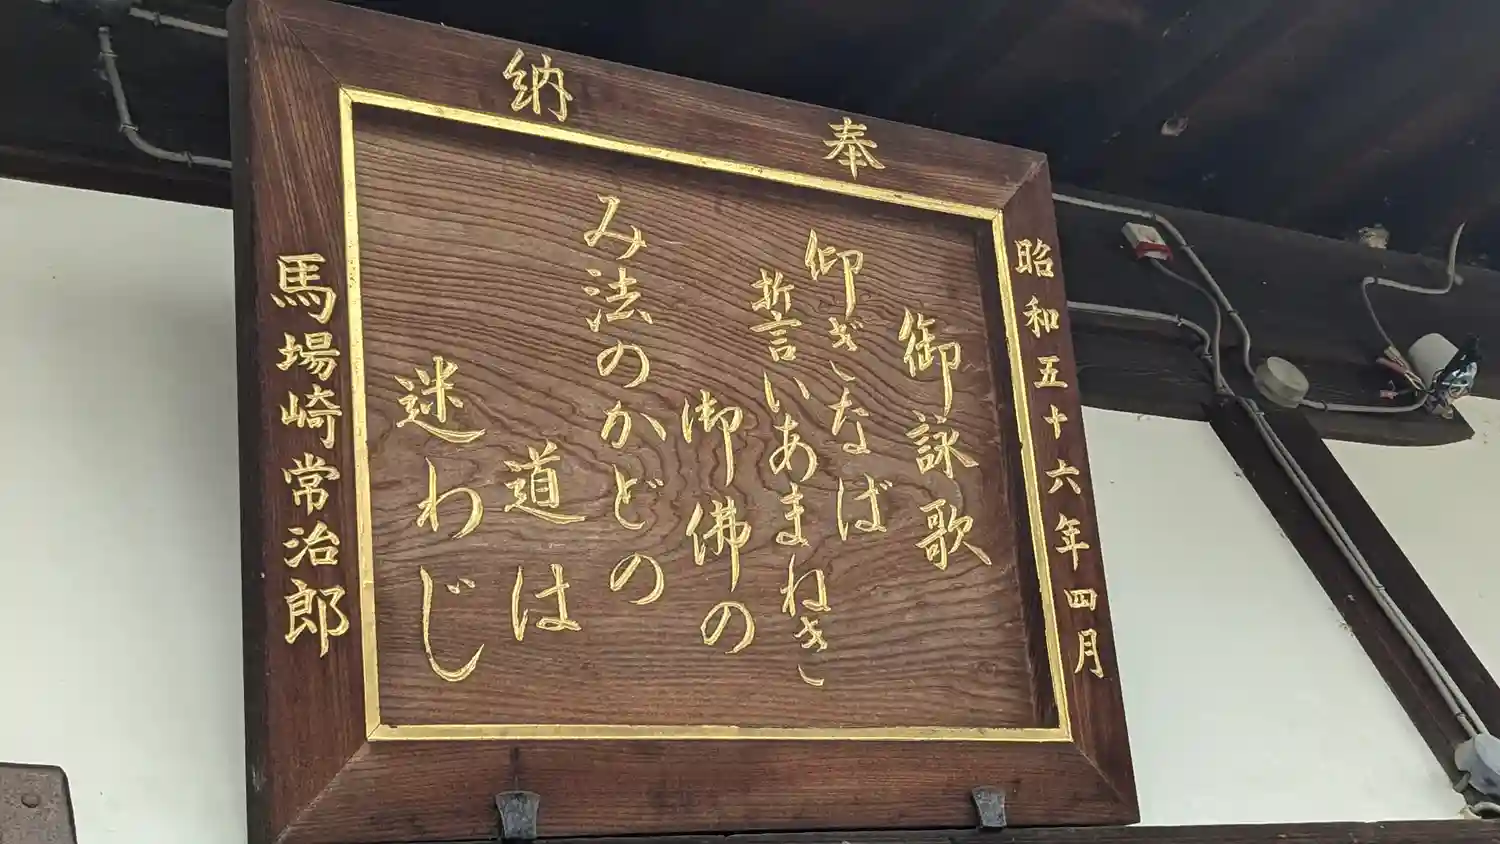 奉納
昭和五十六年四月
御詠歌
仰ぎなば
誓いあまねき
御佛の
み法のかどの
道は
迷わじ
馬場崎常治郎